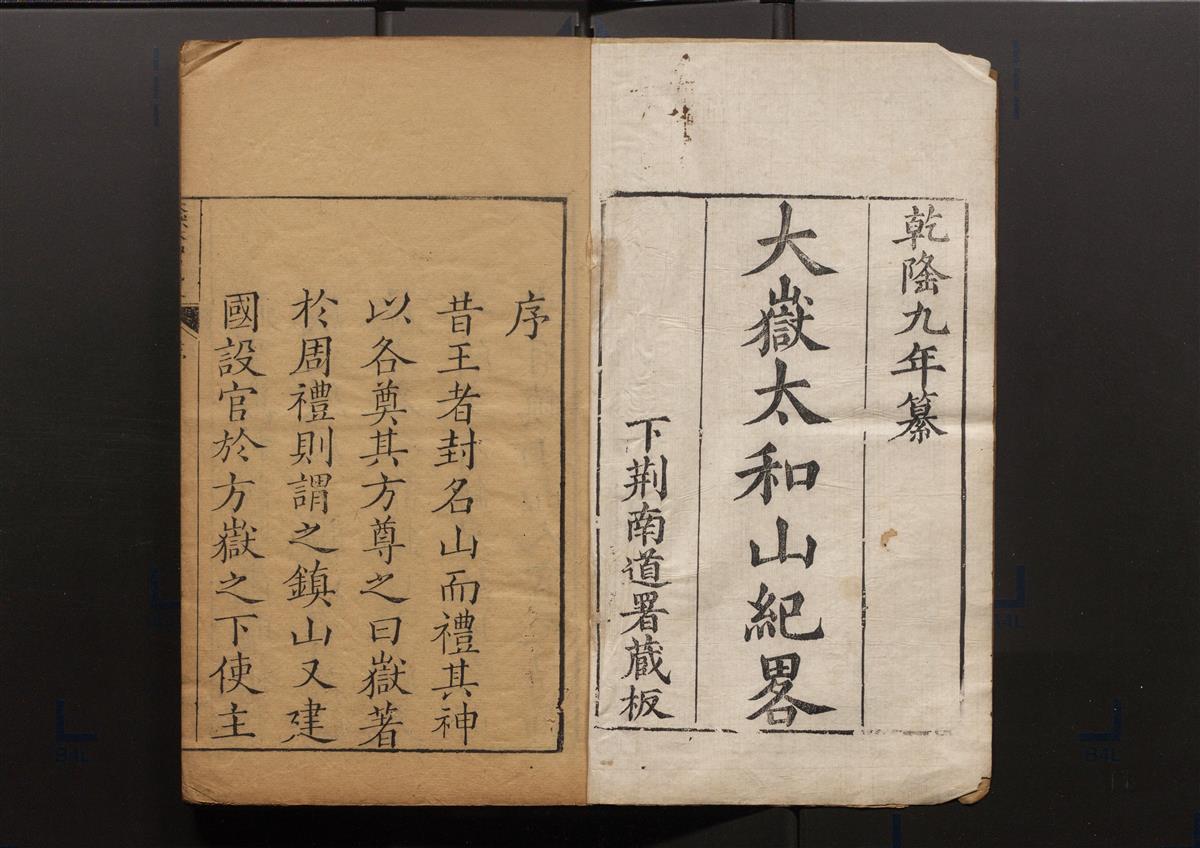 乾隆九年纂
大嶽太和山紀畧
下荆南道署藏板
序
昔王者封名山而禮其神
以各奠其方尊之曰嶽著
於周禮則謂之鎮山又建
國設官於方嶽之下使主